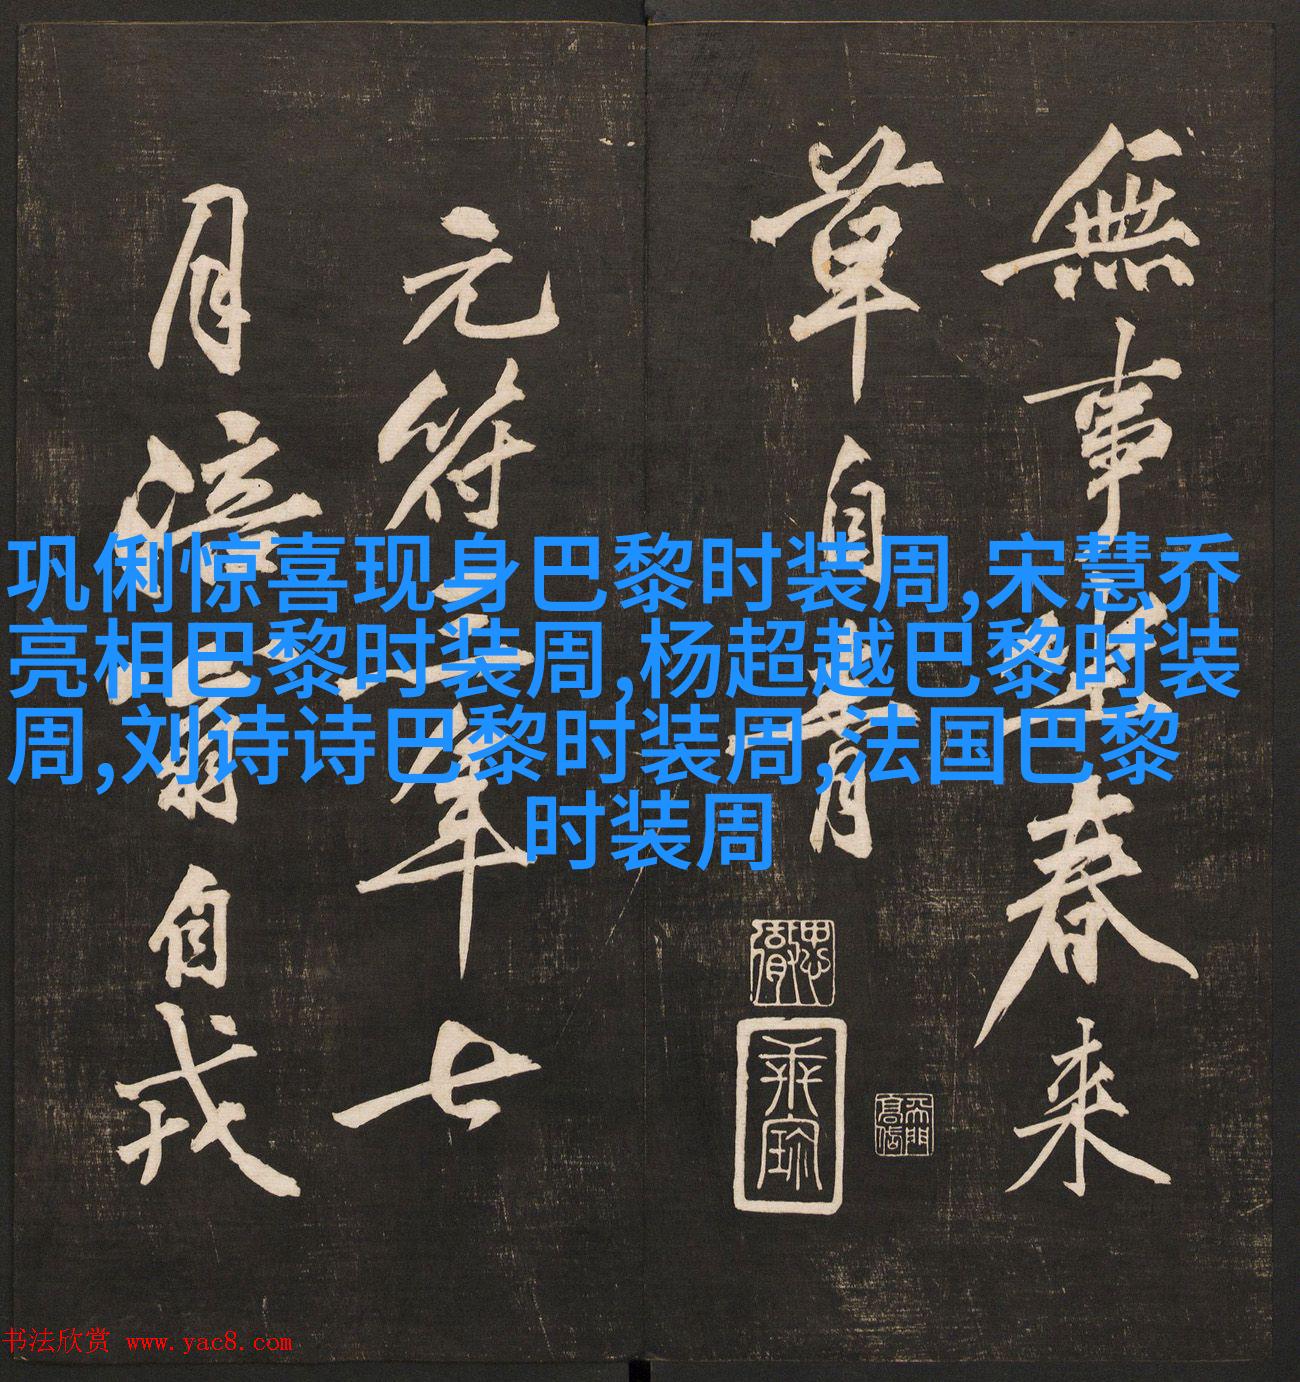 無事坐春来
草自青
元符三年七
月涪翁自戎
巩俐惊喜现身巴黎时装周,宋慧乔
亮相巴黎时装周,杨超越巴黎时装
周,刘诗诗巴黎时装周,法国巴黎
时装周
书法欣赏 www.yac8.com